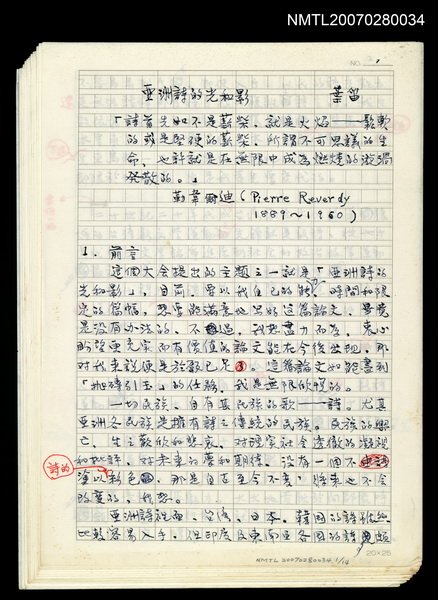 NMTL20070280034
NO. 1
亞洲詩的光和影　葉笛
「詩首先如不是薪柴，就是火焰——鬆軟
的或是堅硬的薪柴，所謂不可思議的生
命，也許就是在無限中成為燃燒的漩渦
發散的。」
勒韋爾迪（Pierre Reverdy
1889～1960）
1．前言
這個大會提出的主題之一就是「亞洲詩的
光和影」，目前，要以我自己的能力、時間和限
定的篇幅，想要能滿意地寫好這篇論文，畢竟
是沒有辦法的。不過，我想盡力而為，衷心
盼望更充實而有價值的論文能在今後出現，那
對我來說便是於願已足了。這篇論文如能盡到
「拋磚引玉」的任務，我是無限欣慰的。
一切民族，自有其民族的歌——詩。尤其
亞洲各民族是擁有詩之傳統的民族。民族的興
亡，生之歡欣和悲哀，對現實社會透徹的凝視
和批評，對未來的夢和期待，沒有一個不
詩的
塗以彩色，那是自古至今不變，將來也不會
改變的，我想。
亞洲詩裡面，台灣、日本、韓國的詩
比較容易入手，但印度及東南亞各國的詩
NMTL20070280034 1/14
20×25